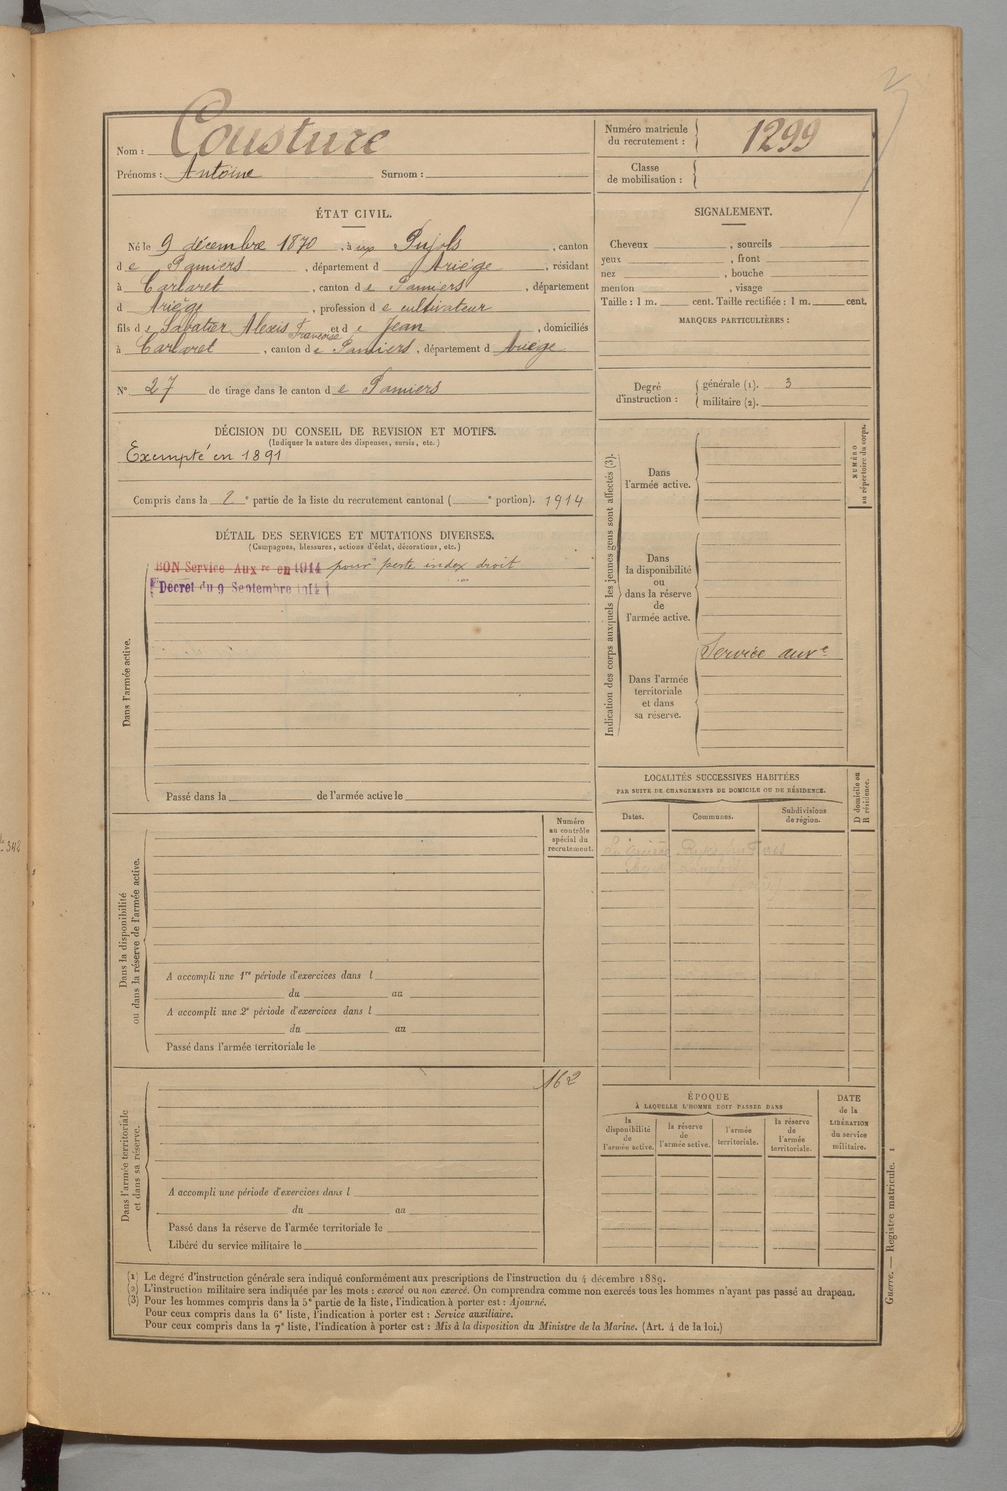 Nom : Cousture
Prénoms : Antoine Surnom :
Numéro matricule du recrutement : 1299
Classe de mobilisation :
ÉTAT CIVIL.
Né le 9 décembre 1870, à aux Pujols, canton
de Pamiers, département d Ariége, résidant
à Carlaret, canton de Pamiers, département
d Ariége, profession de cultivateur
fils de Sabatier Alexis Françoise et de Jean, domiciliés
à Carlaret, canton de Pamiers, département d Ariege
N° 27 de tirage dans le canton de Pamiers
SIGNALEMENT.
Cheveux , sourcils
yeux , front
nez , bouche
menton , visage
Taille : 1 m. cent. Taille rectifiée : 1 m. cent.
MARQUES PARTICULIÈRES :
Degré d'instruction :
générale (1). 3
militaire (2).
DÉCISION DU CONSEIL DE REVISION ET MOTIFS.
(Indiquer la nature des dispenses, sursis, etc.)
Exempté en 1891
Compris dans la 2e partie de la liste du recrutement cantonal ( e portion). 1914
DÉTAIL DES SERVICES ET MUTATIONS DIVERSES.
(Campagnes, blessures, actions d'éclat, décorations, etc.)
BON Service Auxre en 1914 pour perte index droit
Décret du 9 Septembre 1914
Dans l'armée active.
Passé dans la de l'armée active le
Indication des corps auxquels les jeunes gens sont affectés (3).
NUMÉRO au répertoire du corps.
Dans l'armée active.
Dans la disponibilité ou dans la réserve de l'armée active.
Service auxe
Dans l'armée territoriale et dans sa réserve.
LOCALITÉS SUCCESSIVES HABITÉES
PAR SUITE DE CHANGEMENTS DE DOMICILE OU DE RÉSIDENCE.
D domicile ou R résidence.
Dates. Communes. Subdivisions de région.
Numéro au contrôle spécial du recrutement.
Dans la disponibilité ou dans la réserve de l'armée active.
A accompli une 1re période d'exercices dans l
du au
A accompli une 2e période d'exercices dans l
du au
Passé dans l'armée territoriale le
162
Dans l'armée territoriale et dans sa réserve.
A accompli une période d'exercices dans l
du au
Passé dans la réserve de l'armée territoriale le
Libéré du service militaire le
ÉPOQUE
À LAQUELLE L'HOMME DOIT PASSER DANS
la disponibilité de l'armée active.
la réserve de l'armée active.
l'armée territoriale.
la réserve de l'armée territoriale.
DATE de la LIBÉRATION du service militaire.
(1) Le degré d'instruction générale sera indiqué conformément aux prescriptions de l'instruction du 4 décembre 1889.
(2) L'instruction militaire sera indiquée par les mots : exercé ou non exercé. On comprendra comme non exercés tous les hommes n'ayant pas passé au drapeau.
(3) Pour les hommes compris dans la 5e partie de la liste, l'indication à porter est : Ajourné.
Pour ceux compris dans la 6e liste, l'indication à porter est : Service auxiliaire.
Pour ceux compris dans la 7e liste, l'indication à porter est : Mis à la disposition du Ministre de la Marine. (Art. 4 de la loi.)
Guerre. — Registre matricule. 1